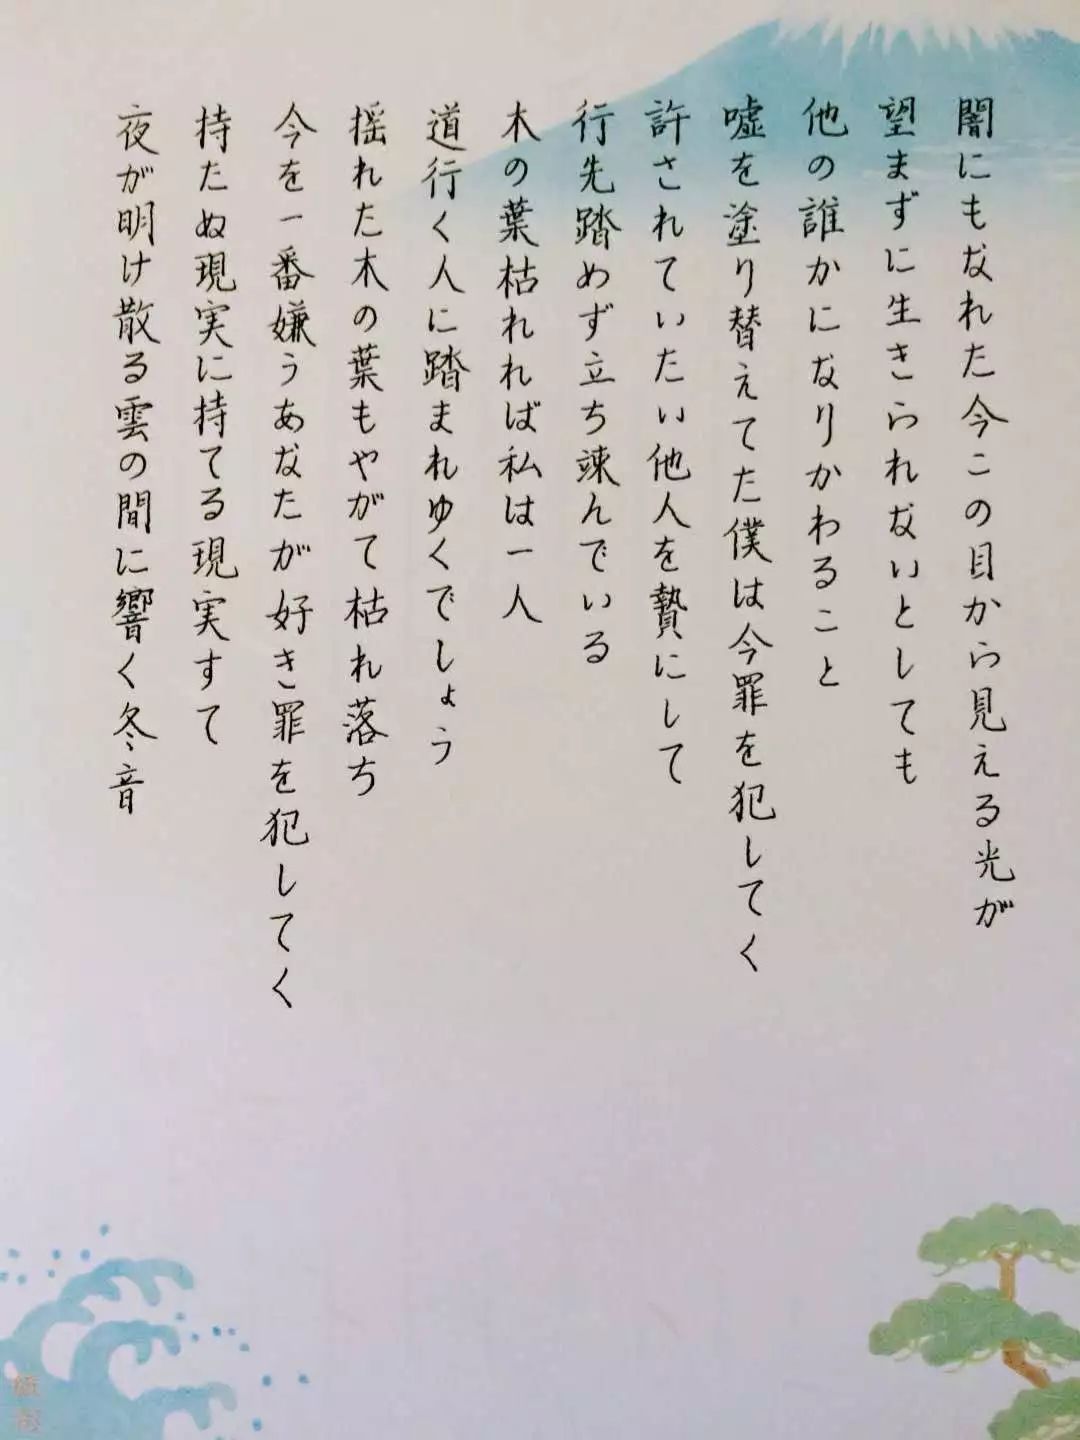 闇にもなれた今この目から見える光が
望まずに生きられないとしても
他の誰かになりかわること
嘘を塗り替えてた僕は今罪を犯してく
許されていたい他人を贄にして
行先踏めず立ち竦んでいる
木の葉枯れれば私は一人
道行く人に踏まれゆくでしょう
揺れた木の葉もやがて枯れ落ち
今を一番嫌うあなたが好き罪を犯してく
持たぬ現実に持てる現実すて
夜が明け散る雲の間に響く冬音